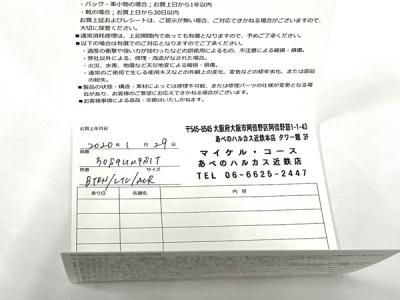 ・バッグ・革小物の場合；お買上日から1年以内
・靴の場合；お買上日から30日以内
お買上証およびレシートは、ご提示が無い場合、ご対応できかねる場合がございますので、
大切に保管ください。
■通常消耗修理は、上記期間内であっても有償となりますので、予めご了承ください。
■以下の場合は有償でのご対応となりますのでご了承ください。
・過度の衝撃や強い力が加わったなどの誤使用によるもの、不注意による破損・損傷。
・弊社以外による、修理・改造がなされた場合。
・火災、水害、地震など天災地変による破損・損傷。
・通常のご使用で生じる使用キズなどの外観上の変化、変色などの経年劣化、または部品
の紛失。
■製品の状態・構造・素材によっては修理不可能、または修理パーツの仕様が変更となる場
合があり、お客様のご要望にお応えできかねる場合がございます。
■お客様事情による返品・交換はいたしかねます。
お買上年月日
2020年 1月 29日
品番
30S9
色番 サイズ
BTRN/LTC/ACR
承り日 店舗名
〒545-8545 大阪府大阪市阿倍野区阿倍野筋1-1-43
あべのハルカス近鉄本店 タワー館 3F
マイケル・コース
あべのハルカス近鉄店
TEL 06-6625-2447